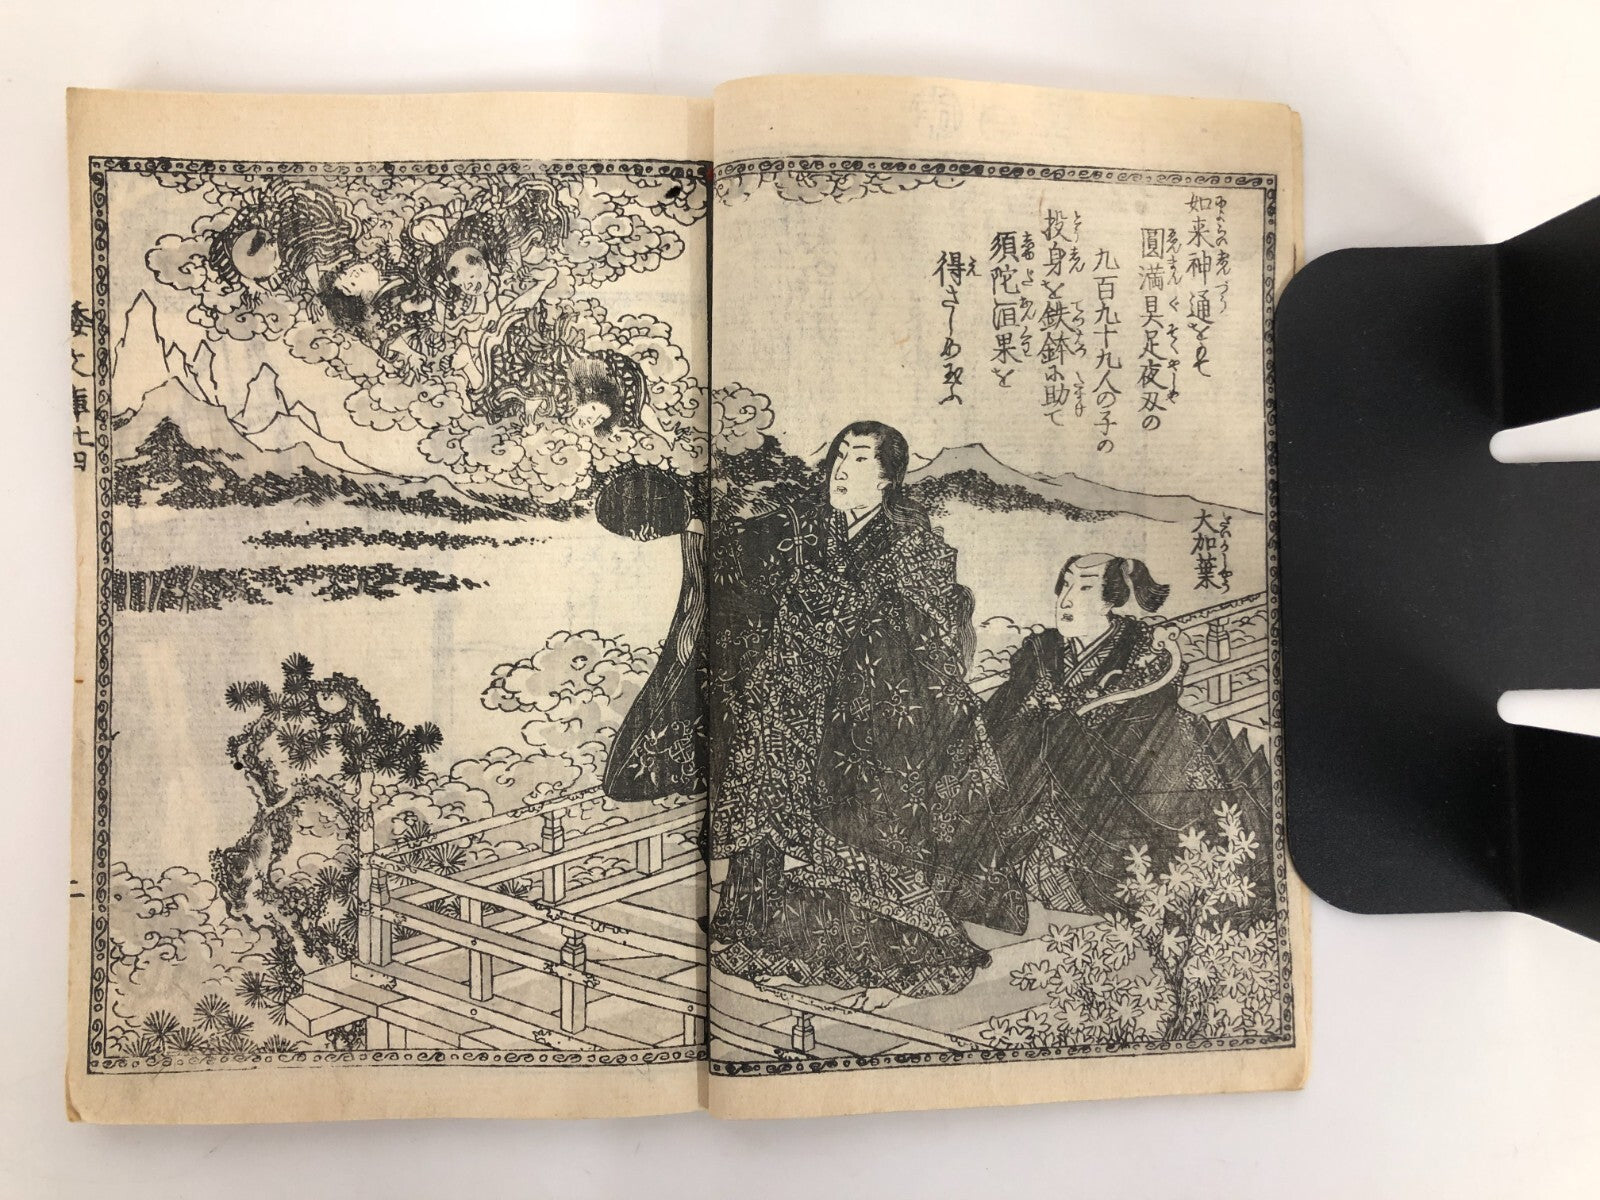 如来神通をもて
圓満具足夜刄の
九百九十九人の子の
投身を鉄鉢に助て
須陀洹果を
得さしめ玉ふ
大加葉
倭文庫 十四
二